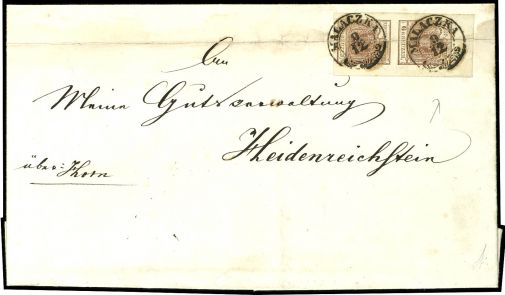 MALACZKA
8
12
MALACZKA
8
12
An
Meine Gutsverwaltung
Heidenreichstein
über: Horn